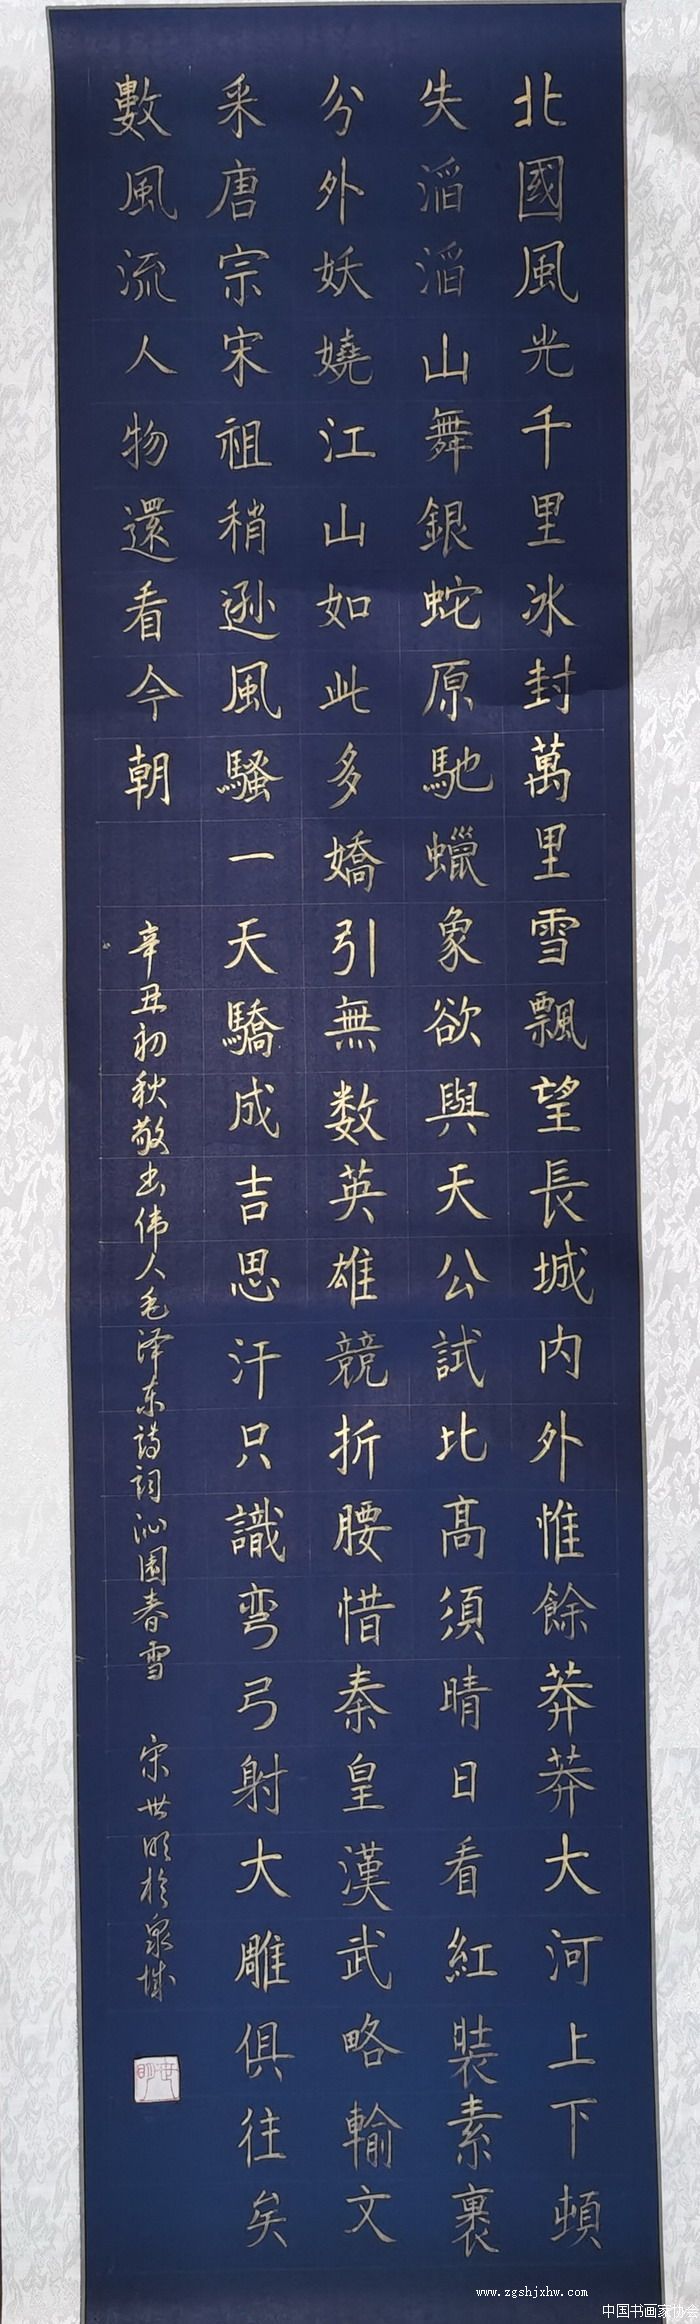 北國風光千里冰封萬里雪飄望長城内外惟餘莽莽大河上下頓
失滔滔山舞銀蛇原馳蠟象欲與天公試比高須晴日看紅裝素裹
分外妖嬈江山如此多嬌引無数英雄競折腰惜秦皇漢武略輸文
采唐宗宋祖稍遜風騷一天驕成吉思汗只識弯弓射大雕俱往矣
數風流人物還看今朝
辛丑初秋敬书伟人毛泽东詩词沁園春雪
宋世明於泉城
世明
www.zgshjxhw.com
中国书画家协会